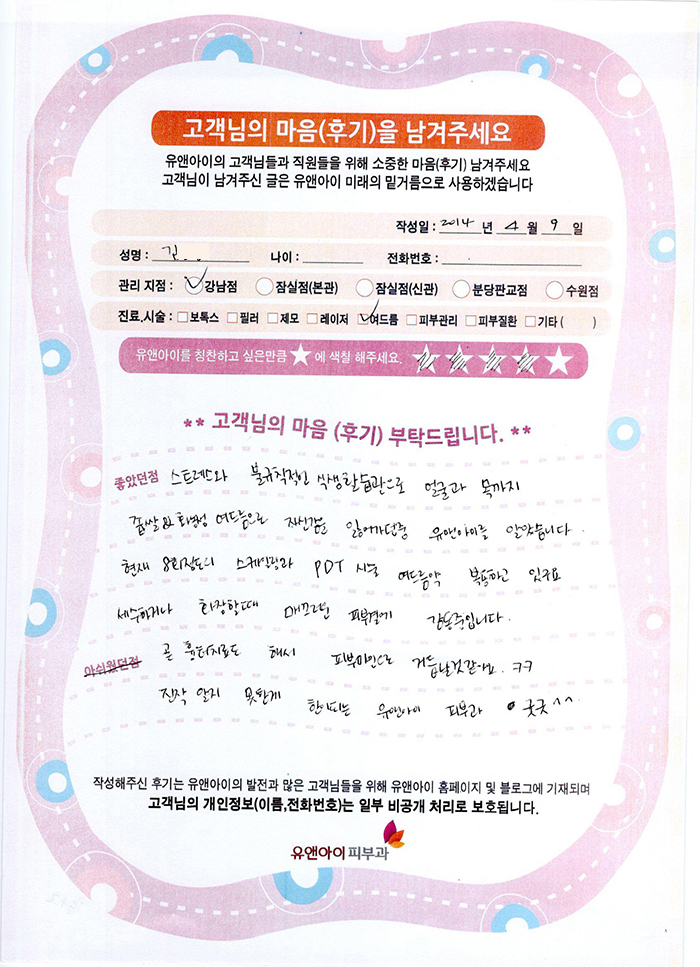 고객님의 마음(후기)을 남겨주세요
유앤아이의 고객님들과 직원들을 위해 소중한 마음(후기) 남겨주세요
고객님이 남겨주신 글은 유앤아이 미래의 밑거름으로 사용하겠습니다
작성일 : 2014 년 4 월 9 일
성명 : 김 나이 : 전화번호 :
관리 지점 : 강남점 잠실점(본관) 잠실점(신관) 분당판교점 수원점
진료.시술 : 보톡스 필러 제모 레이저 여드름 피부관리 피부질환 기타 ( )
유앤아이를 칭찬하고 싶은만큼 ★ 에 색칠 해주세요. ★★★★★
** 고객님의 마음 (후기) 부탁드립니다. **
좋았던점 스트레스와 불규칙적인 식생활습관으로 얼굴과 목까지
좁쌀 & 화농성 여드름으로 자신감을 잃어가던중 유앤아이를 알았습니다.
현재 8회정도의 스케일링과 PDT 시술 여드름약 복용하고 있구요
세수하거나 화장할때 매끄러운 피부결에 감동중입니다.
아쉬웠던점 곧 흉터치료도 해서 피부미인으로 거듭날것같아요. ㅋㅋ
진작 알지 못한게 한이되는 유앤아이 피부과 굿굿^^
작성해주신 후기는 유앤아이의 발전과 많은 고객님들을 위해 유앤아이 홈페이지 및 블로그에 기재되며
고객님의 개인정보(이름,전화번호)는 일부 비공개 처리로 보호됩니다.
유앤아이 피부과